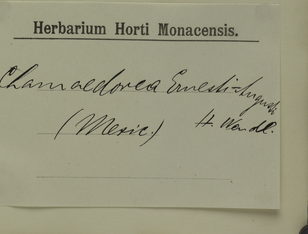 Herbarium Horti Monacensis.
Chamaedorea Ernesti-Augusti
H. Wendl.
(Mexic.)